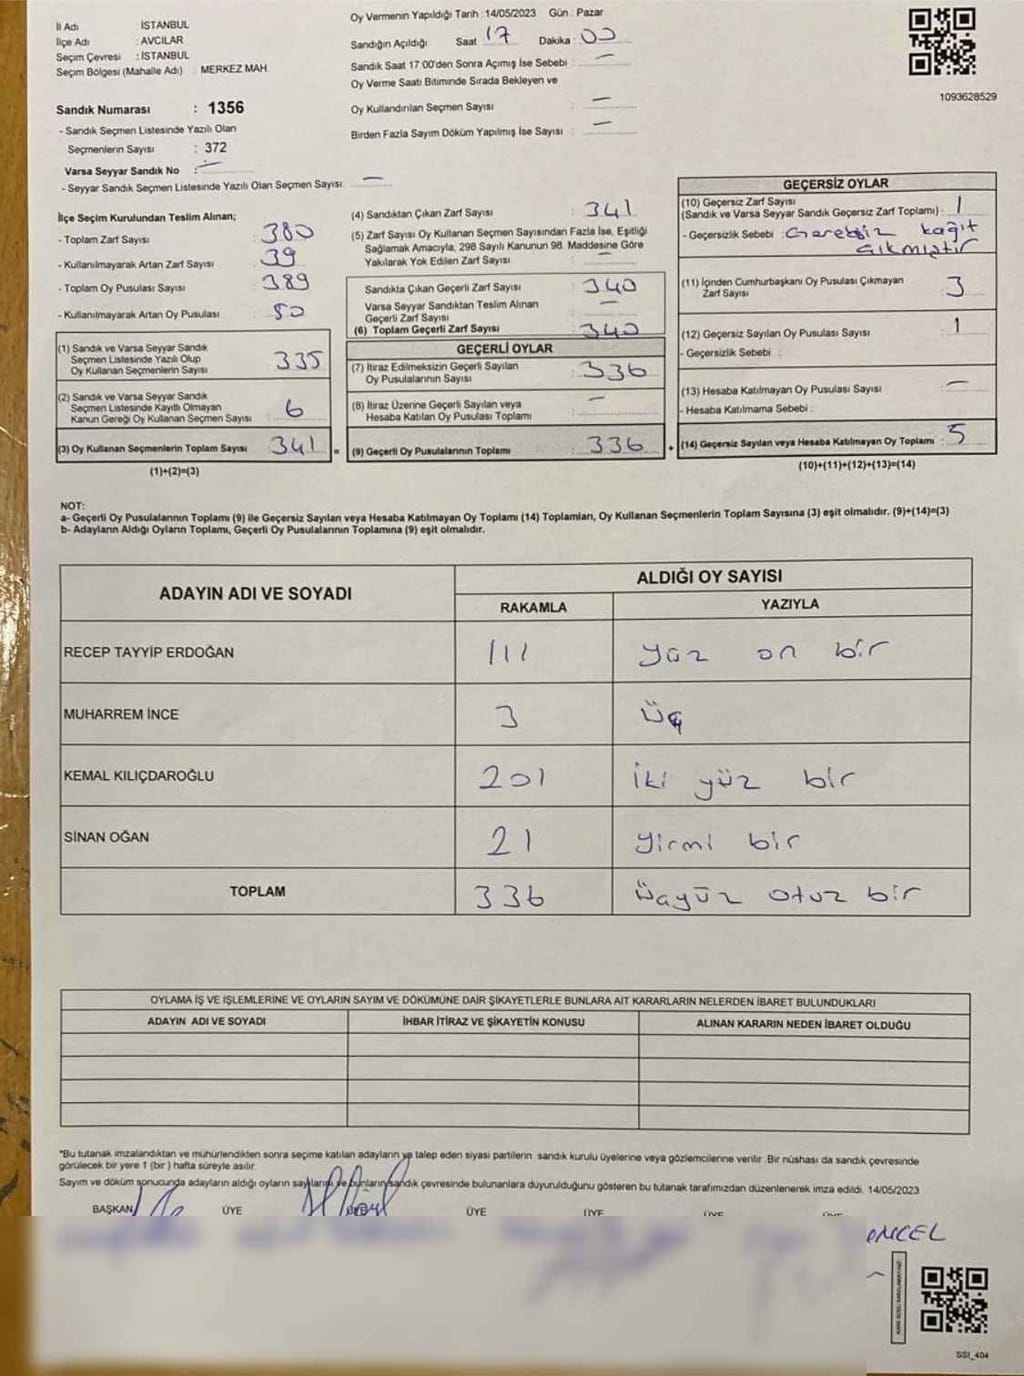 İl Adı : İSTANBUL
İlçe Adı : AVCILAR
Seçim Çevresi : İSTANBUL
Seçim Bölgesi (Mahalle Adı) : MERKEZ MAH.
Sandık Numarası : 1356
- Sandık Seçmen Listesinde Yazılı Olan
Seçmenlerin Sayısı : 372
Varsa Seyyar Sandık No : —
- Seyyar Sandık Seçmen Listesinde Yazılı Olan Seçmen Sayısı: —
Oy Vermenin Yapıldığı Tarih : 14/05/2023 Gün : Pazar
Sandığın Açıldığı Saat : 17 Dakika : 00
Sandık Saat 17:00'den Sonra Açımış İse Sebebi : —
Oy Verme Saati Bitiminde Sırada Bekleyen ve
Oy Kullandırılan Seçmen Sayısı : —
Birden Fazla Sayım Döküm Yapılmış İse Sayısı : —
1093628529
İlçe Seçim Kurulundan Teslim Alınan;
- Toplam Zarf Sayısı : 380
- Kullanılmayarak Artan Zarf Sayısı : 39
- Toplam Oy Pusulası Sayısı : 389
- Kullanılmayarak Artan Oy Pusulası : 50
(1) Sandık ve Varsa Seyyar Sandık
Seçmen Listesinde Yazılı Olup
Oy Kullanan Seçmenlerin Sayısı : 335
(2) Sandık ve Varsa Seyyar Sandık
Seçmen Listesinde Kayıtlı Olmayan
Kanun Gereği Oy Kullanan Seçmen Sayısı : 6
(3) Oy Kullanan Seçmenlerin Toplam Sayısı : 341 =
(1)+(2)=(3)
(4) Sandıktan Çıkan Zarf Sayısı : 341
(5) Zarf Sayısı Oy Kullanan Seçmen Sayısından Fazla İse, Eşitliği
Sağlamak Amacıyla, 298 Sayılı Kanunun 98. Maddesine Göre
Yakılarak Yok Edilen Zarf Sayısı : —
Sandıkta Çıkan Geçerli Zarf Sayısı : 340
Varsa Seyyar Sandıktan Teslim Alınan
Geçerli Zarf Sayısı : —
(6) Toplam Geçerli Zarf Sayısı : 340
GEÇERLİ OYLAR
(7) İtiraz Edilmeksizin Geçerli Sayılan
Oy Pusulalarının Sayısı : 336
(8) İtiraz Üzerine Geçerli Sayılan veya
Hesaba Katılan Oy Pusulası Toplamı : —
(9) Geçerli Oy Pusulalarının Toplamı : 336 +
GEÇERSİZ OYLAR
(10) Geçersiz Zarf Sayısı
(Sandık ve Varsa Seyyar Sandık Geçersiz Zarf Toplamı) : 1
- Geçersizlik Sebebi : Gereksiz kağıt
çıkmıştır
(11) İçinden Cumhurbaşkanı Oy Pusulası Çıkmayan
Zarf Sayısı : 3
(12) Geçersiz Sayılan Oy Pusulası Sayısı : 1
- Geçersizlik Sebebi :
(13) Hesaba Katılmayan Oy Pusulası Sayısı : —
- Hesaba Katılmama Sebebi :
(14) Geçersiz Sayılan veya Hesaba Katılmayan Oy Toplamı : 5
(10)+(11)+(12)+(13)=(14)
NOT:
a- Geçerli Oy Pusulalarının Toplamı (9) ile Geçersiz Sayılan veya Hesaba Katılmayan Oy Toplamı (14) Toplamları, Oy Kullanan Seçmenlerin Toplam Sayısına (3) eşit olmalıdır. (9)+(14)=(3)
b- Adayların Aldığı Oyların Toplamı, Geçerli Oy Pusulalarının Toplamına (9) eşit olmalıdır.
ADAYIN ADI VE SOYADI ALDIĞI OY SAYISI
RAKAMLA YAZIYLA
RECEP TAYYİP ERDOĞAN 111 yüz on bir
MUHARREM İNCE 3 üç
KEMAL KILIÇDAROĞLU 201 iki yüz bir
SİNAN OĞAN 21 yirmi bir
TOPLAM 336 üçyüz otuz bir
OYLAMA İŞ VE İŞLEMLERİNE VE OYLARIN SAYIM VE DÖKÜMÜNE DAİR ŞİKAYETLERLE BUNLARA AİT KARARLARIN NELERDEN İBARET BULUNDUKLARI
ADAYIN ADI VE SOYADI İHBAR İTİRAZ VE ŞİKAYETİN KONUSU ALINAN KARARIN NEDEN İBARET OLDUĞU
*Bu tutanak imzalandıktan ve mühürlendikten sonra seçime katılan adayların ve talep eden siyasi partilerin sandık kurulu üyelerine veya gözlemcilerine verilir. Bir nüshası da sandık çevresinde
görülecek bir yere 1 (bir) hafta süreyle asılır.
Sayım ve döküm sonucunda adayların aldığı oyların sayılarını ve bunların sandık çevresinde bulunanlara duyurulduğunu gösteren bu tutanak tarafımızdan düzenlenerek imza edildi. 14/05/2023
BAŞKAN ÜYE ÜYE ÜYE ÜYE
SSI_404